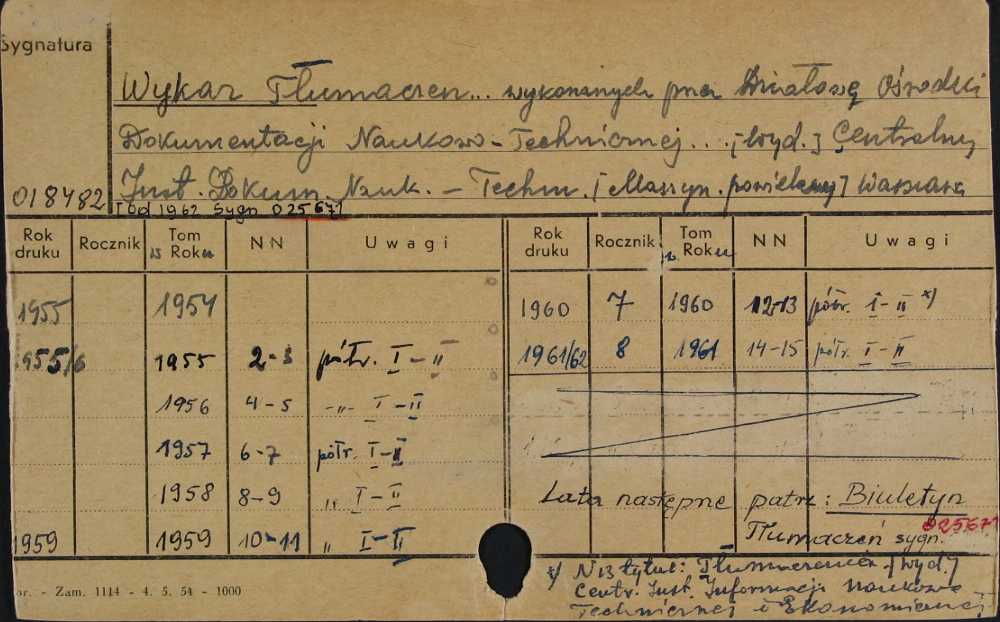 Sygnatura
Wykaz Tłumaczeń... wykonanych przez Działową Ośrodki
Dokumentacji Naukowo-Technicznej... [wyd.] Centralny
018482 Inst. Dokum. Nauk. - Techn. [Maszyn. powielany] Warszawa
[od 1962 Sygn 025671]
Rok druku Rocznik Tom is Roku NN Uwagi Rok druku Rocznik Tom Roku NN Uwagi
1955 1954 1960 7 1960 12-13 półr. I-II x)
1955/6 1955 2-3 półr. I-II 1961/62 8 1961 14-15 półr. I-II
1956 4-5 -"- I-II
1957 6-7 półr. I-II
1958 8-9 " I-II Lata następne patrz: Biuletyn
1959 1959 10-11 " I-II Tłumaczeń sygn. 025671
x) N 13 tytuł: Tłumaczenia [wyd.]
or. - Zam. 1114 - 4. 5. 54 - 1000 Centr. Inst. Informacji Naukowo
Technicznej i Ekonomicznej